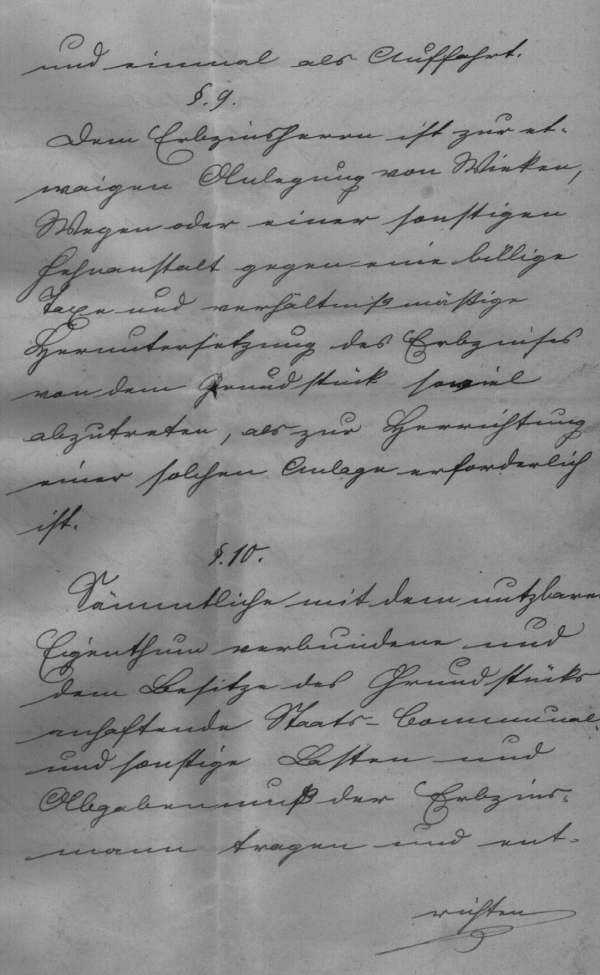 und einmal als Auffahrt.
§. 9.
Dem Erbzinsherrn ist zur et-
waigen Anlegung von Wieken,
Wegen oder einer sonstigen
Fehnanstalt gegen eine billige
Taxe und verhältnißmäßige
Herruntersetzung des Erbzinses
von dem Grundstück soviel
abzutreten, als zur Herrichtung
einer solchen Anlage erforderlich
ist.
§. 10.
Sämmtliche mit dem nutzbaren
Eigenthum verbundene und
dem Besitze des Grundstücks
anhaftende Staats- Communal-
und sonstige Lasten und
Abgaben muß der Erbzins-
mann tragen und ent-
richten